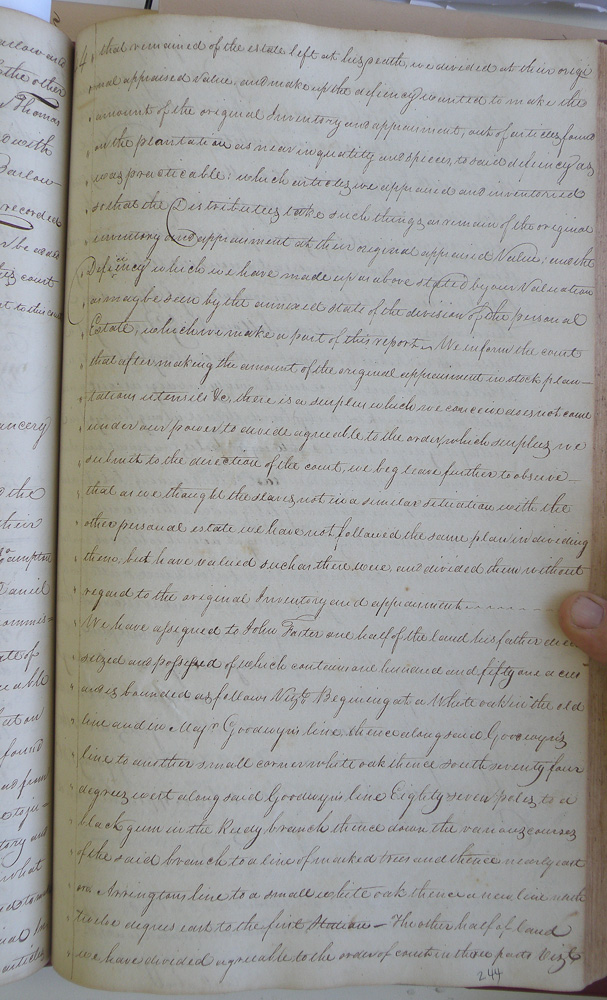 that remained of the estate left at his death, we devided at their origi
nal appraised value, and make up the defiency wanted to make the
amount of the original Inventory and appraisment, out of articles found
on the plantation as near in quality and species, to said defiency as
was practicable: which articles we appraised and inventoried
so that the Distributees take such things as remain of the original
inventory and appraisment at their original appraised Value; and the
Defiency which we have made up as above stated by our Valuation
as may be seen by the annexed state of the division of the personal
Estate, which we make a part of this report. We inform the court
that after making the amount of the original appraisment in stock plan-
tation utensils &c, there is a surplus which we conceive does not come
under our power to divide agreeable to the order, which surplus we
submit to the direction of the court, we beg leave further to observe
that as we thought the slaves not in a similar situation with the
other personal estate we have not followed the same plan in dividing
them, but have valued such as there were, and divided them without
regard to the original Inventory and appraisment
We have assigned to John Foster one half of the land his father died
seized and possessed of which contains one hundred and fifty one acres
and is bounded as follows Vizt. Begining at a White oak in the old
line and in Majr. Goodwyn's line, thence along said Goodwyn's
line to another small corner white oak thence south seventy four
degrees west along said Goodwyn's line Eighty seven poles, to a
black gum in the Reedy branch thence down the various courses
of the said branch to a line of marked trees and thence nearly east
on Arringtons line to a small white oak thence a new line north
twelve degrees east to the first Station – The other half of land
we have divided agreeable to the order of court in three parts Vizt.
244